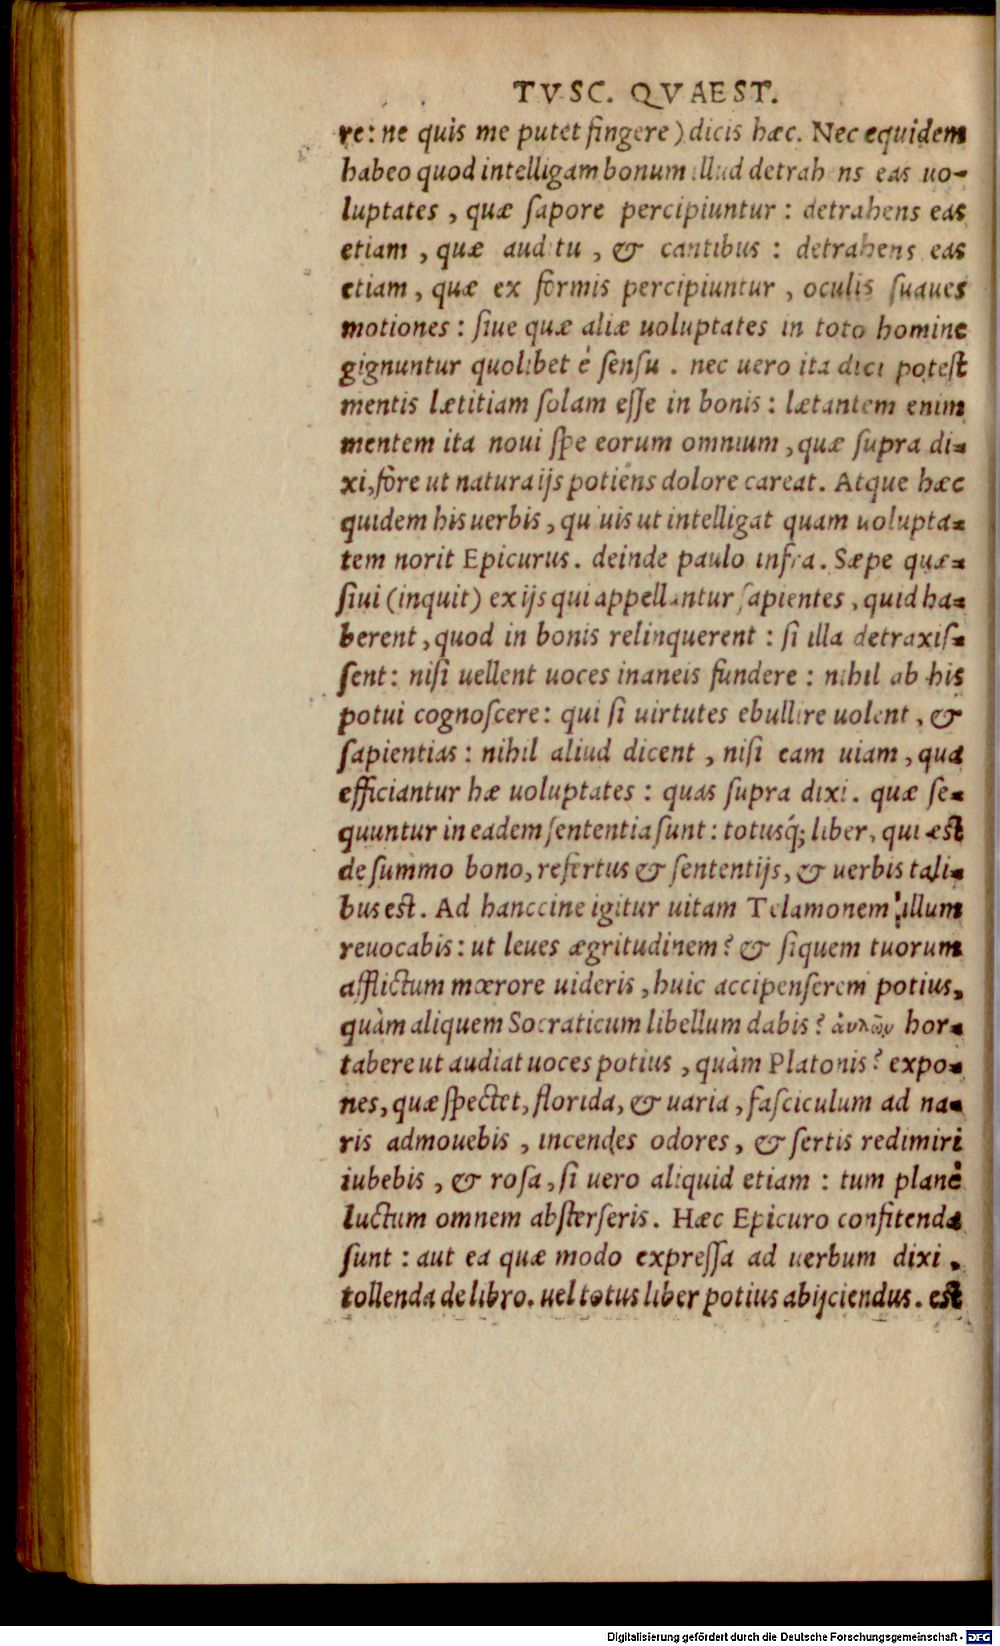 TVSC. QVAEST.
re: ne quis me putet fingere) dicis hæc. Nec equidem
habeo quod intelligam bonum illud detrahens eas uo-
luptates, quæ sapore percipiuntur: detrahens eas
etiam, quæ auditu, & cantibus: detrahens eas
etiam, quæ ex formis percipiuntur, oculis suaues
motiones: siue quæ aliæ uoluptates in toto homine
gignuntur quolibet è sensu. nec uero ita dici potest
mentis lætitiam solam esse in bonis: lætantem enim
mentem ita noui spe eorum omnium, quæ supra di-
xi, fore ut natura ijs potiens dolore careat. Atque hæc
quidem his uerbis, quiuis ut intelligat quam uolupta-
tem norit Epicurus. deinde paulo infra. Sæpe quæ-
siui (inquit) ex ijs qui appellantur sapientes, quid ha-
berent, quod in bonis relinquerent: si illa detraxis-
sent: nisi uellent uoces inaneis fundere: nihil ab his
potui cognoscere: qui si uirtutes ebullire uolent, &
sapientias: nihil aliud dicent, nisi eam uiam, qua
efficiantur hæ uoluptates: quas supra dixi. quæ se-
quuntur in eadem sententia sunt: totusq́; liber, qui est
de summo bono, refertus & sententijs, & uerbis tali-
bus est. Ad hanccine igitur uitam Telamonem illum
reuocabis: ut leues ægritudinem? & siquem tuorum
afflictum mœrore uideris, huic accipenserem potius,
quàm aliquem Socraticum libellum dabis? ἀυλῶν hor-
tabere ut audiat uoces potius, quàm Platonis? expo-
nes, quæ spectet, florida, & uaria, fasciculum ad na-
ris admouebis, incendes odores, & sertis redimiri
iubebis, & rosa, si uero aliquid etiam: tum planè
luctum omnem absterseris. Hæc Epicuro confitenda
sunt: aut ea quæ modo expressa ad uerbum dixi,
tollenda de libro. uel totus liber potius abijciendus. est
Digitalisierung gefördert durch die Deutsche Forschungsgemeinschaft - DFG